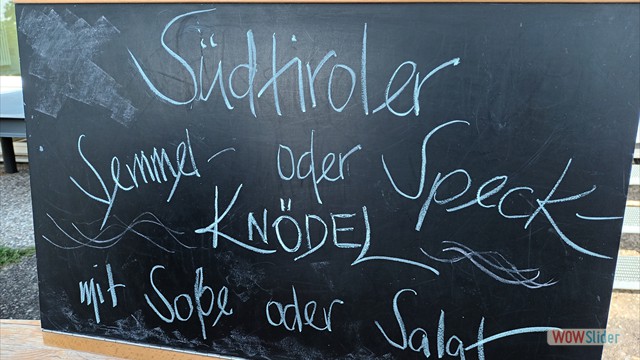 Südtiroler
Semmel- oder Speck-
KNÖDEL
mit Soße oder Salat
WOWSlider